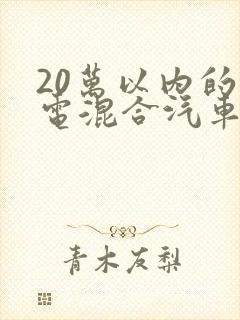 20萬以内的
電混合汽車
青木友梨